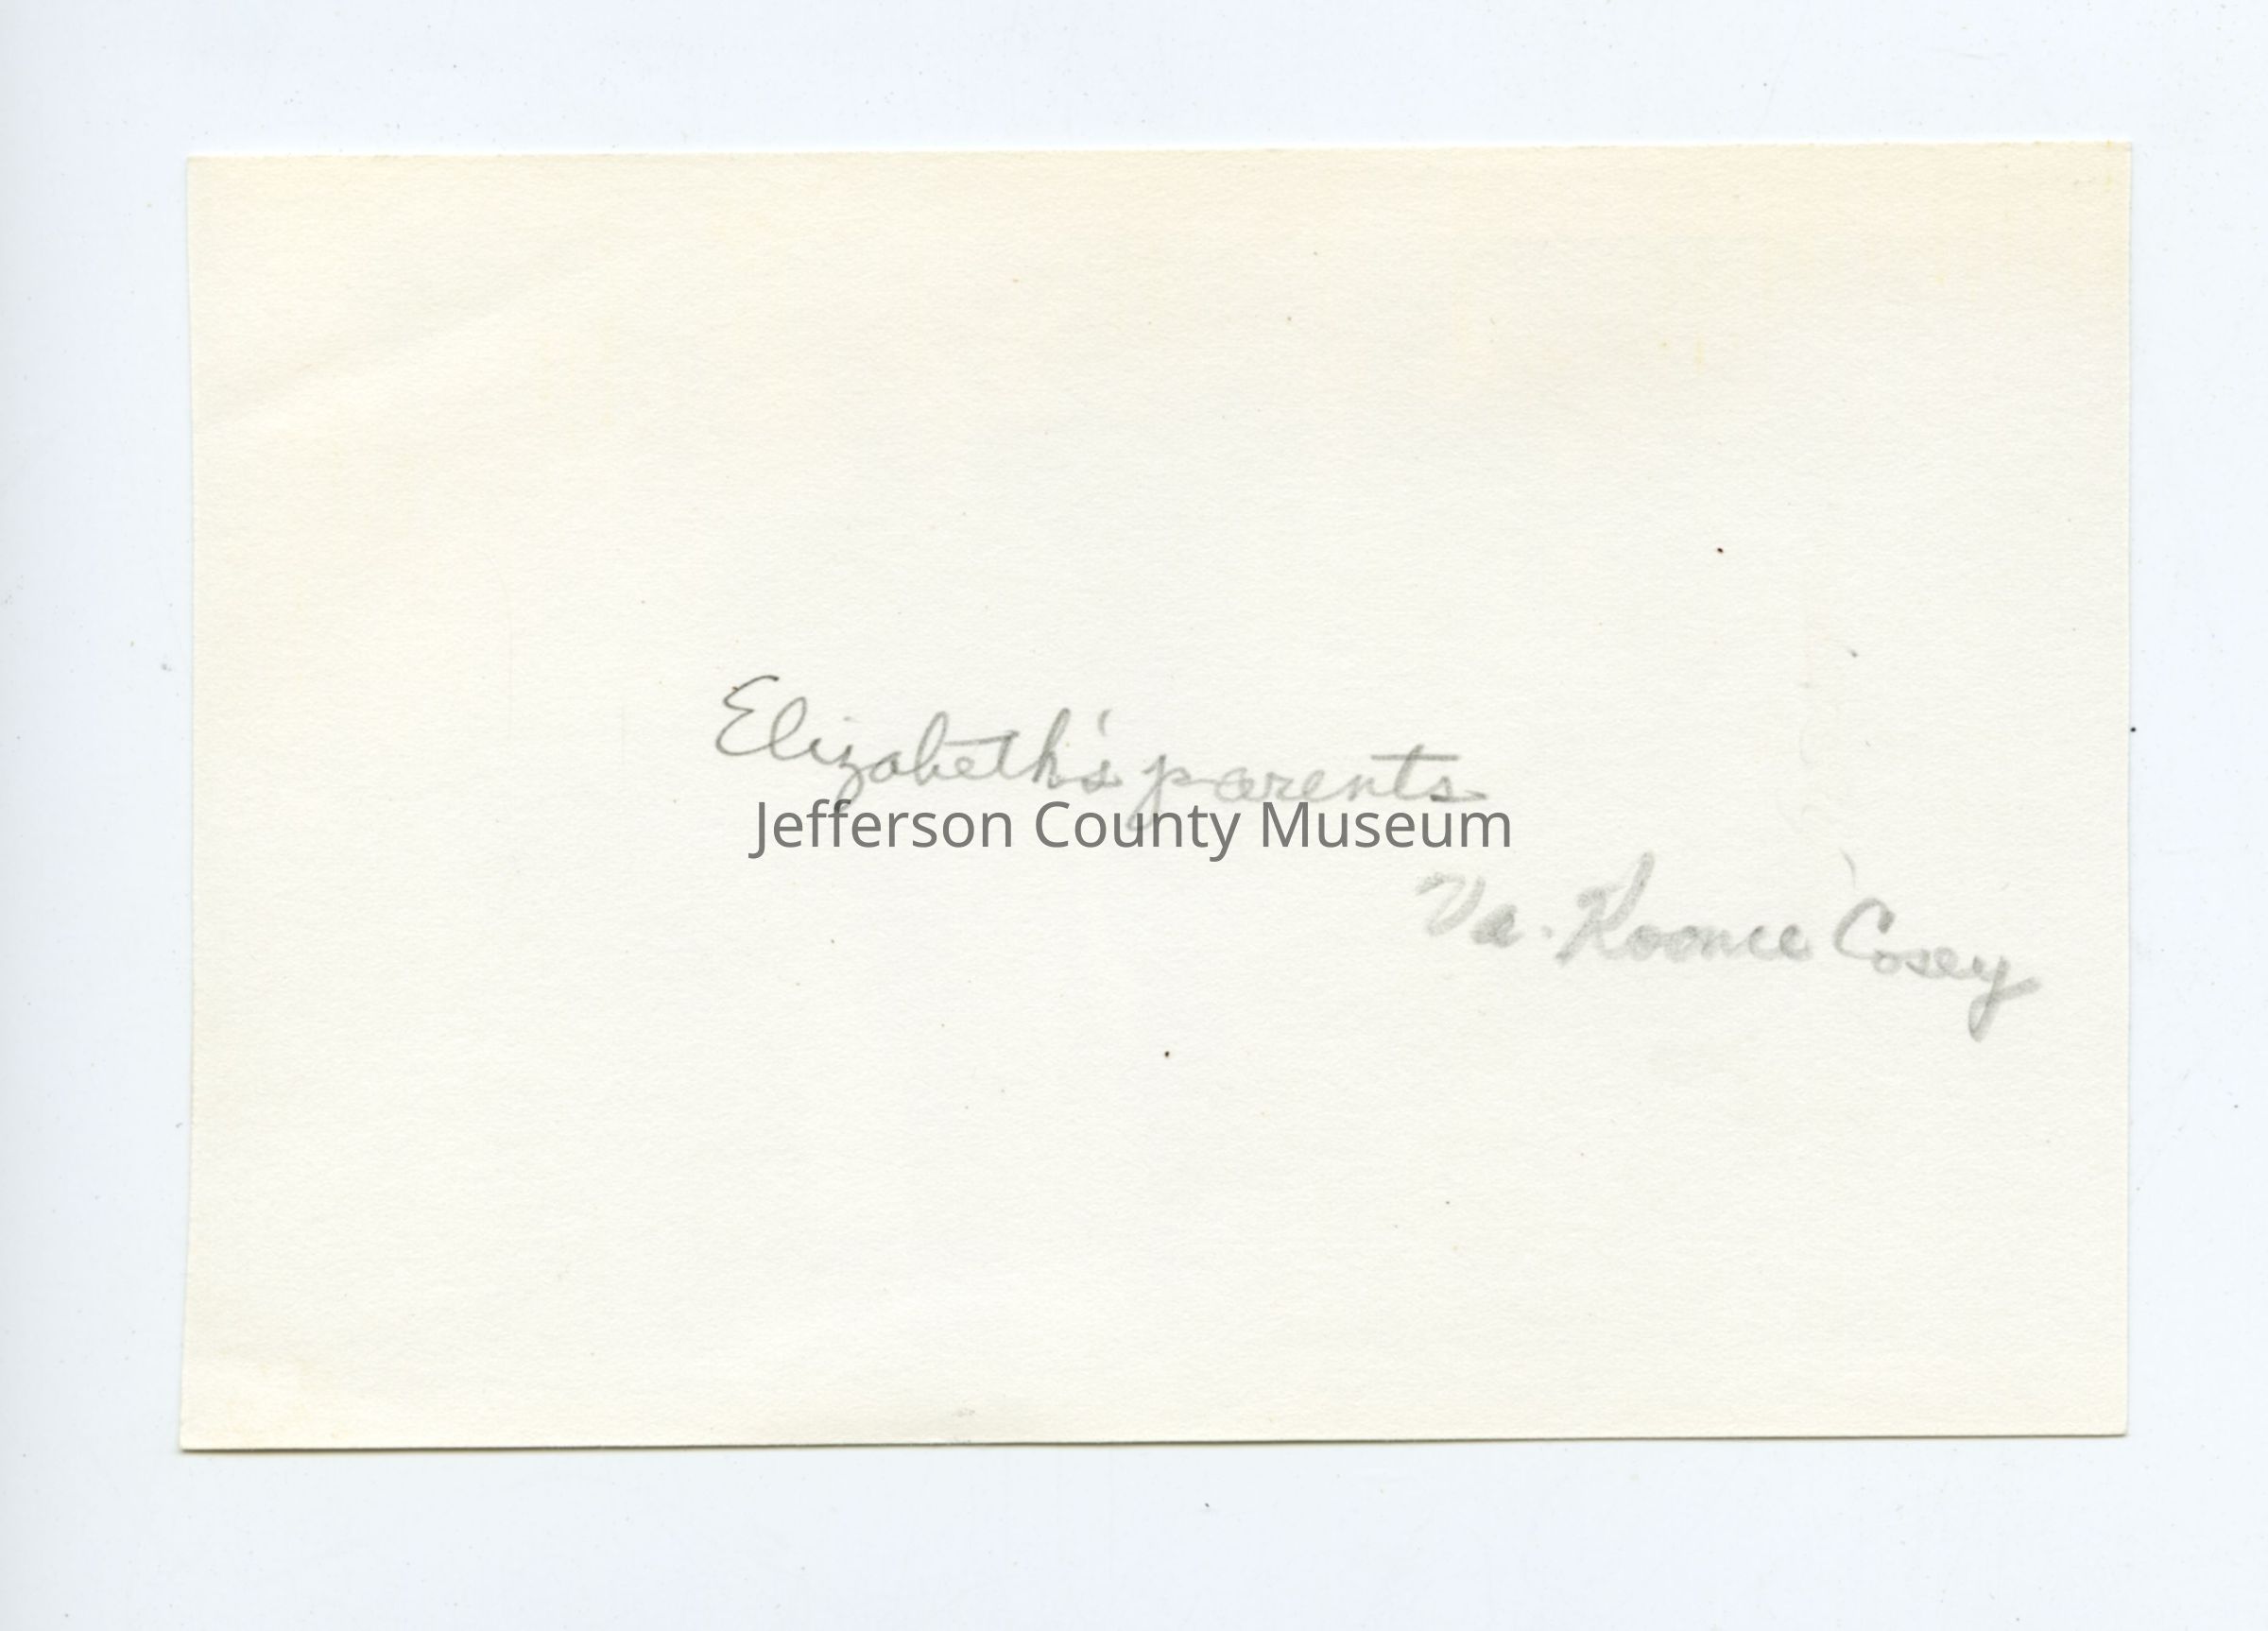 Elizabeth's parents
Jefferson County Museum
Va. Koonce Cosey